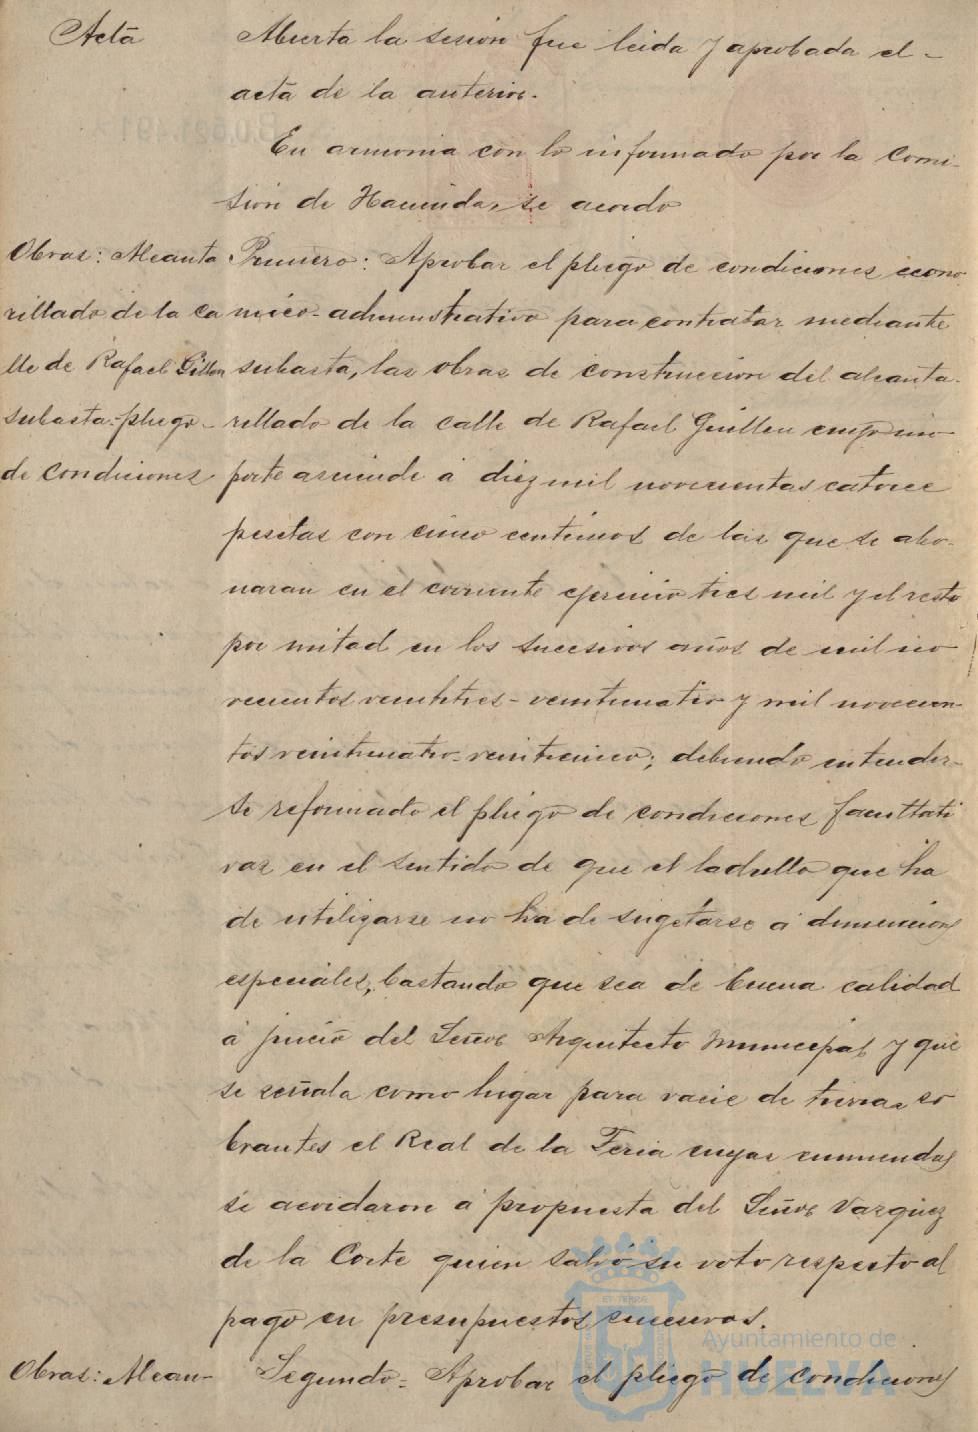 Acta
Abierta la sesión fue leida y aprobada el-
acta de la anterior.
En armonia con lo informado por la Comi-
sión de Hacienda, se acordo
Obras: Alcanta
rillado de la ca
lle de Rafael Gillen
subasta-pliego-
de condiciones
Primero: Aprobar el pliego de condiciones econo
mico-administrativo para contratar mediante
subasta, las obras de construccion del alcanta-
rillado de la calle de Rafael Guillen cuyo im
porte asciende á diez mil novecientas catorce
pesetas con cinco centimos de las que se abo-
naran en el corriente ejercicio tres mil y el resto
por mitad en los sucesivos años de mil no
vecientos veintitres-veinticuatro y mil novecien-
tos veinticuatro-veinticinco; debiendo entender-
se reformado el pliego de condiciones facultati
vas en el sentido de que el ladrillo que ha
de utilizarse no ha de sugetarse á dimenciones
especiales, bastando que sea de buena calidad
á juicio del Señor Arquitecto Municipal y que
se señala como lugar para vacie de tierras so
brantes el Real de la Feria cuyas enmiendas
se acordaron á propuesta del Señor Vazquez
de la Corte quien salvó su voto respecto al
pago en presupuestos sucesivos.
Obras: Alcan-
Segundo- Aprobar el pliego de condiciones
Ayuntamiento de
HUELVA